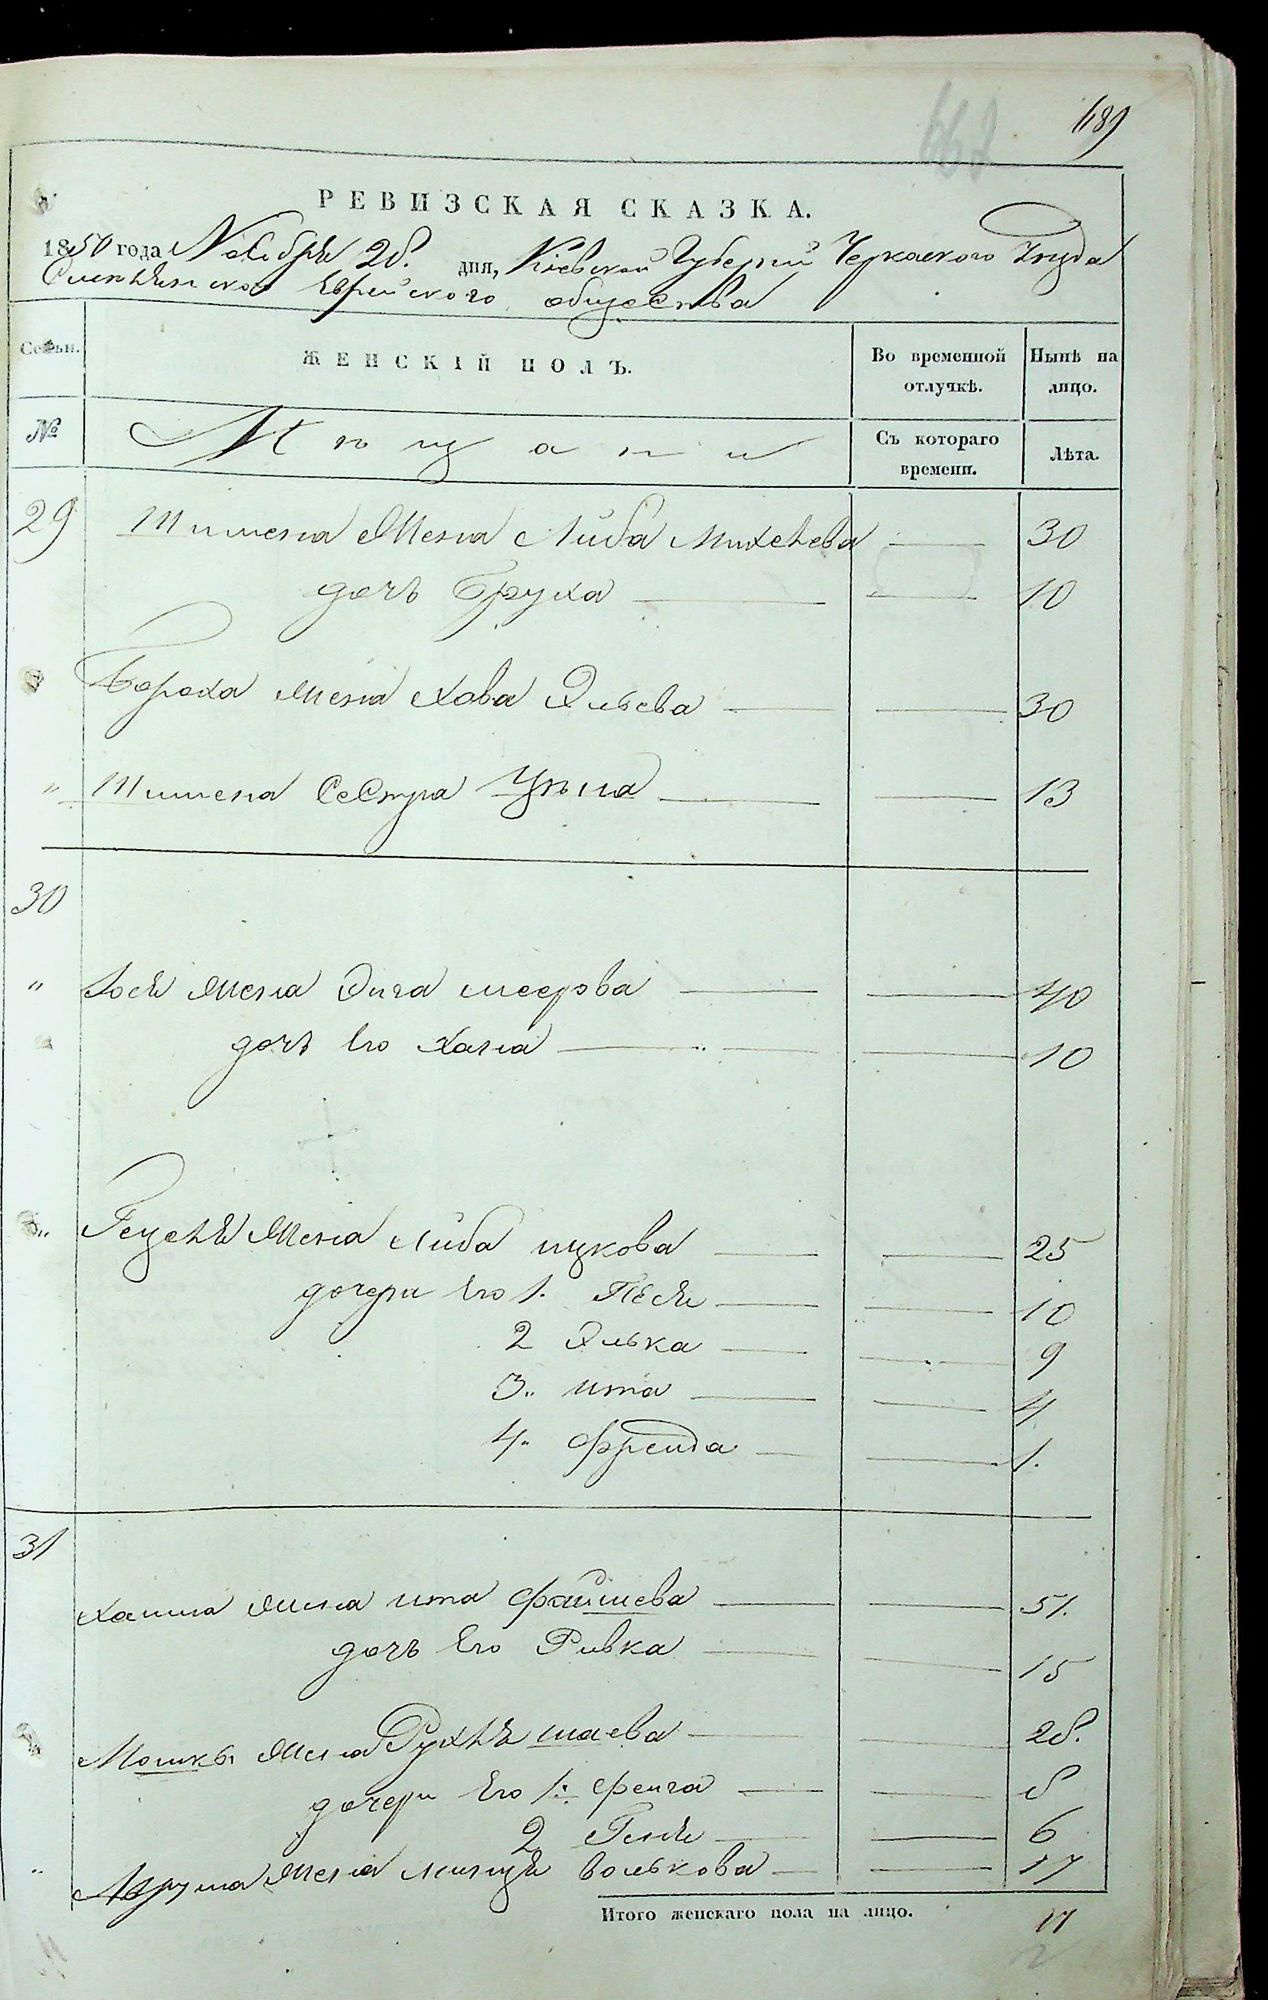 689
662
РЕВИЗСКАЯ СКАЗКА.
1850 года Ноября 28. дня, Кіевской Губерніи Черкаского Уезда
Смелянского Еврейского общества
Семьи.
ЖЕНСКІЙ ПОЛЪ.
Во временной отлучкѣ.
Нынѣ на лицо.
№
Мѣщани
Съ котораго времени.
Лѣта.
29 Шимена Жена Либа Михелева — — 30
дочь Бруха — — 10
Бороха жена Хова Эльева — — 30
" Шимена Сестра — — 13
30
" Іося жена Энга меерова — — 40
дочь Его Хана — — 10
" Гецеля Жена Либа ицкова — — 25
дочери Его 1. Песя — — 10
2 Элька — — 9
3. ита — — 4
4. Фрейда — — 1.
31
Хаима жена ита Файшева — — 51.
дочь Его Ривка — — 15
Мошки жена Рухля шаева — — 28.
дочери Его 1. Фейга — — 8
2 Геня — — 6
" Аврума жена волькова — — 17
Итого женскаго пола на лицо. 17